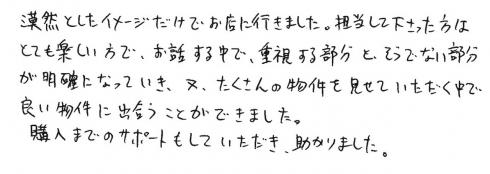 漠然としたイメージだけでお店に行きました。担当して下さった方は
とても楽しい方で、お話する中で、重視する部分と、そうでない部分
が明確になっていき、又、たくさんの物件を見せていただく中で
良い物件に出合うことができました。
購入までのサポートもしていただき、助かりました。